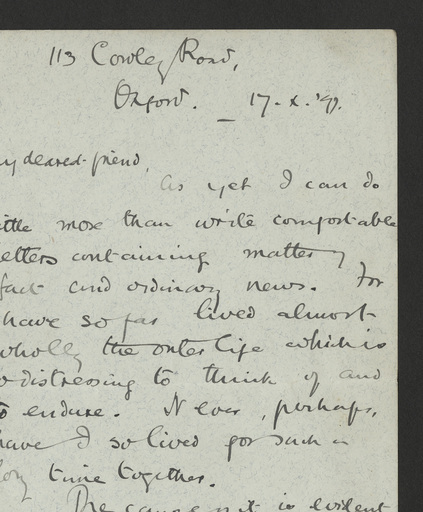 113 Cowley Road,
Oxford. 17. X. '97.
my dearest friend,
As yet I can do
ittle more than write comfortable
etters containing matter of
fact and ordinary news. For
have so far lived almost
wholly the outer life which is
o distressing to think of and
to endure. Never, perhaps,
have I so lived for such a
long time together.
The cause of it is evident